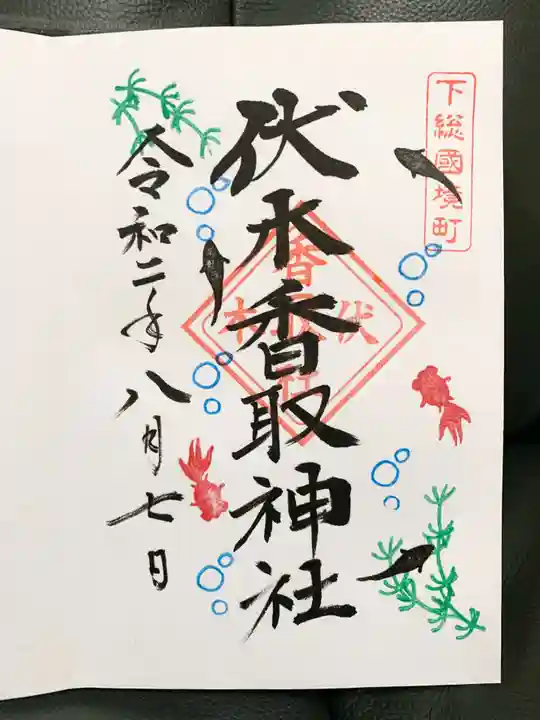 下総國境町
伏木香取神社
令和二年八月七日
伏木
香取
社